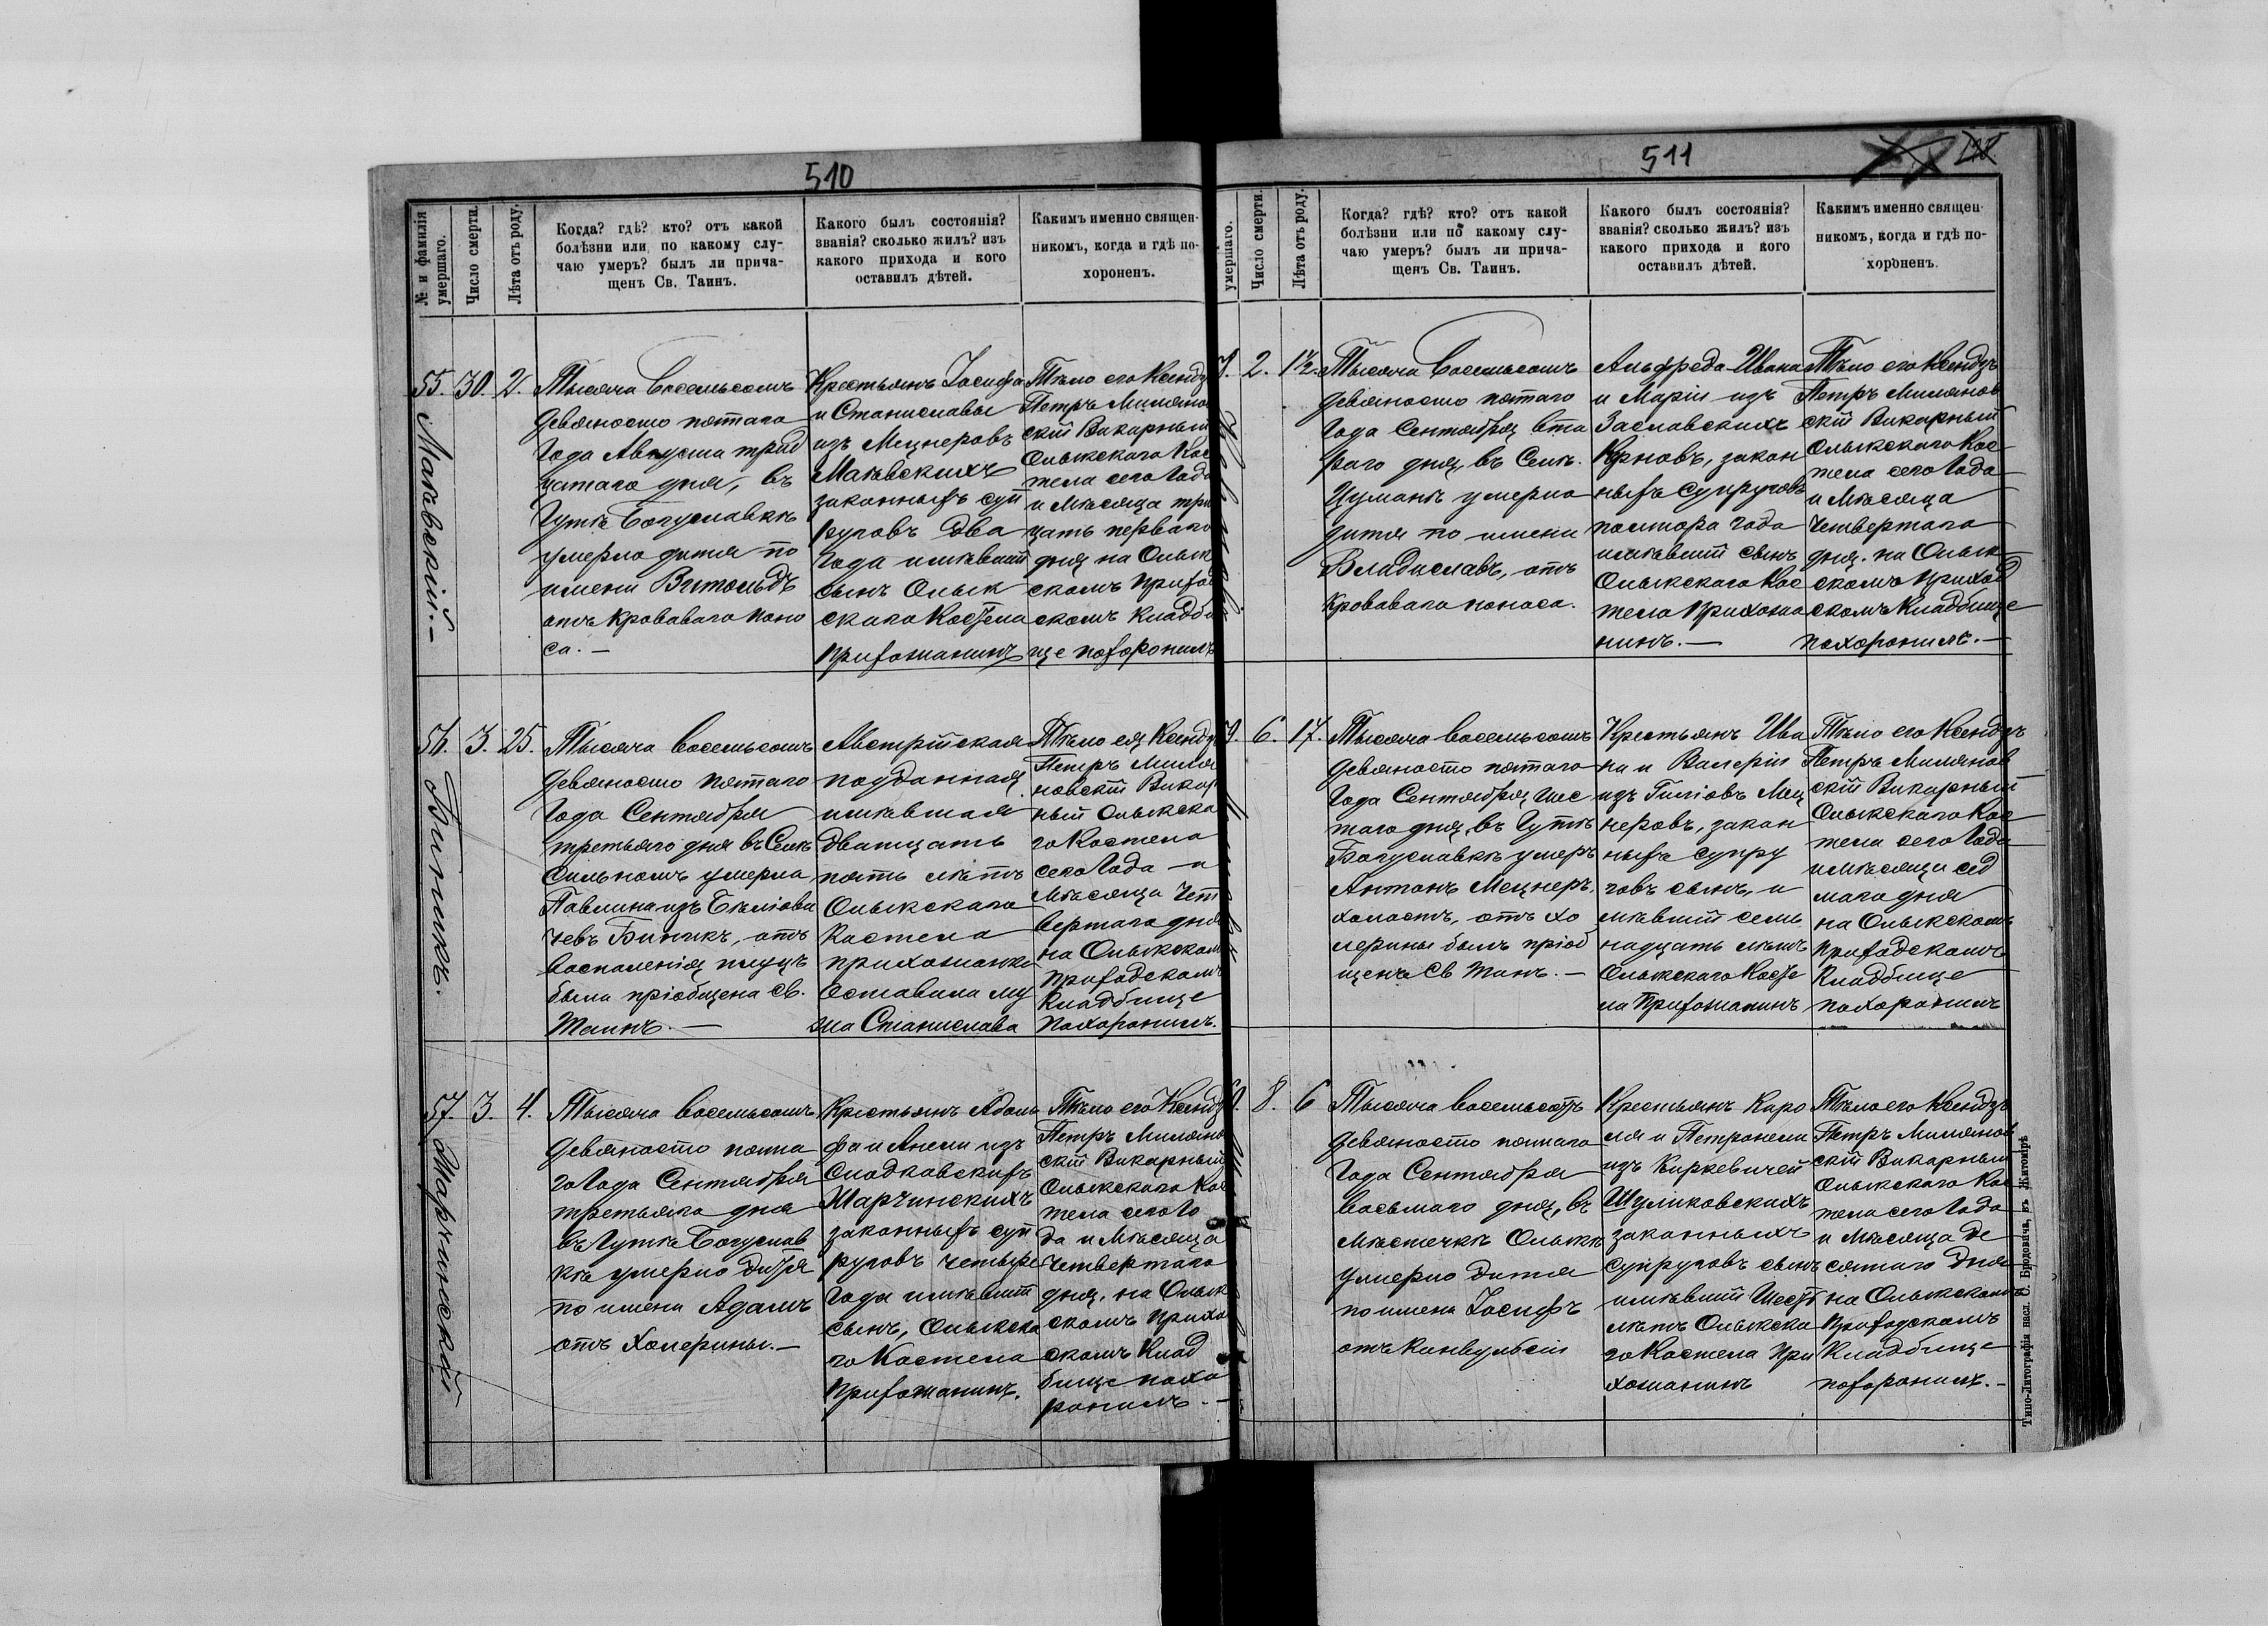 510
№ и фамилія умершаго.
Число смерти.
Лѣта отъ роду.
Когда? гдѣ? кто? отъ какой
болѣзни или по какому слу-
чаю умеръ? былъ ли прича-
щенъ Св. Таинъ.
Какого былъ состоянія?
званія? сколько жилъ? изъ
какого прихода и кого
оставилъ дѣтей.
Какимъ именно священ-
никомъ, когда и гдѣ по-
хороненъ.
55.
30.
2.
Тысяча восемьсотъ
девяносто пятаго
Года Августа трид
цатаго дня, въ
Гутѣ Богуславкѣ
умерло дитя по
имени Витольдъ
отъ кроваваго поно
са. —
Крестьянъ Іосифа
и Станиславы
изъ Мецнеровъ
Маковскихъ
законныхъ суп
руговъ два
года имѣвшій
сынъ Олык
скаго Костела
прихожанинъ
Тѣло его Ксендзъ
Петръ Миляно
скій Викарный
Олыкскаго Кос
тела сего Года
и Мѣсяца три
цать перваго
дня на Олык
скомъ приход
скомъ кладби
ще похоронилъ
56.
Биликъ.
3.
25.
Тысяча восемьсотъ
девяносто пятаго
Года Сентября
третьяго дня въ Селѣ
Сильномъ умерла
Павлина изъ
Биликъ, отъ
воспаленія плуцъ
была пріобщена Св.
Таинъ. —
Австрійская
подданная
имѣвшая
двацать
пять лѣтъ
Олыкскаго
Костела
прихожанка
оставила му
жа Станислава
Тѣло ея Ксендзъ
Петръ Миля
новскій Викар
ный Олыкска
го Костела
сего Года и
Мѣсяца Чет
вертаго дня
на Олыкскомъ
приходскомъ
кладбище
похоронилъ.
57.
Шарчинскій
3.
4.
Тысяча восемьсотъ
девяносто пята
го Года Сентября
третьяго дня
въ Гутѣ Богуслав
кѣ умерло дитя
по имени Адамъ
отъ Холерины. —
Крестьянъ Адоль
фа и Анели изъ
Сладковскихъ
Шарчинскихъ
законныхъ суп
руговъ четыре
года имѣвшій
сынъ, Олыкска
го Костела
прихожанинъ.
Тѣло его Ксендзъ
Петръ Миляно
скій Викарный
Олыкскаго Кос
тела сего Го
да и Мѣсяца
Четвертаго
дня, на Олык
скомъ прихо
скомъ клад
бище похо
ронилъ. —
511
умершаго.
Число смерти.
Лѣта отъ роду.
Когда? гдѣ? кто? отъ какой
болѣзни или по какому слу-
чаю умеръ? былъ ли прича-
щенъ Св. Таинъ.
Какого былъ состоянія?
званія? сколько жилъ? изъ
какого прихода и кого
оставилъ дѣтей.
Какимъ именно священ-
никомъ, когда и гдѣ по-
хороненъ.
2.
1½.
Тысяча восемьсотъ
девяносто пятаго
Года Сентября вто
раго дня, въ Селѣ
Цуманѣ умерло
дитя по имени
Владиславъ, отъ
кроваваго поноса.
Альфреда-Ивана
и Маріи изъ
Заславскихъ
закон
ныхъ супруговъ
полтора года
имѣвшій сынъ
Олыкскаго Кос
тела прихожа
нинъ. —
Тѣло его Ксендзъ
Петръ Милянов
скій Викарный
Олыкскаго Кос
тела сего Года
и Мѣсяца
Четвертаго
дня. на Олык
скомъ приход
скомъ кладбище
похоронилъ. —
6.
17.
Тысяча восемьсотъ
девяносто пятаго
Года Сентября шес
таго дня, въ Гутѣ
Богуславкѣ умеръ
Антонъ Мецнеръ,
холостъ, отъ хо
лерины былъ пріоб
щенъ Св Таинъ. —
Крестьянъ Ива
на и Валеріи
изъ Мец
неровъ, закон
ныхъ супру
говъ сынъ, и
мѣвшій семь
надцать лѣтъ
Олыкскаго Косте
ла прихожанинъ
Тѣло его Ксендзъ
Петръ Милянов
скій Викарный
Олыкскаго Кос
тела сего Года
и Мѣсяца сед
маго дня
на Олыкскомъ
приходскомъ
кладбище
похоронилъ
8.
6
Тысяча восемьсотъ
девяносто пятаго
Года Сентября
восьмаго дня, въ
Мѣстечкѣ Олыкѣ
умерло дитя
по имени Іосифъ
отъ Конвульсіи
Крестьянъ Каро
ля и Петронели
изъ Киркевичей
Шуликовскихъ
законныхъ
супруговъ сынъ
имѣвшій шесть
лѣтъ Олыкска
го Костела при
хожанинъ
Тѣло его Ксендзъ
Петръ Милянов
скій Викарный
Олыкскаго Кос
тела сего Года
и Мѣсяца де
сятаго дня
на Олыкскомъ
приходскомъ
кладбище
похоронилъ. —
Типо-Литографія насл. С. Бродовича, въ Житомірѣ